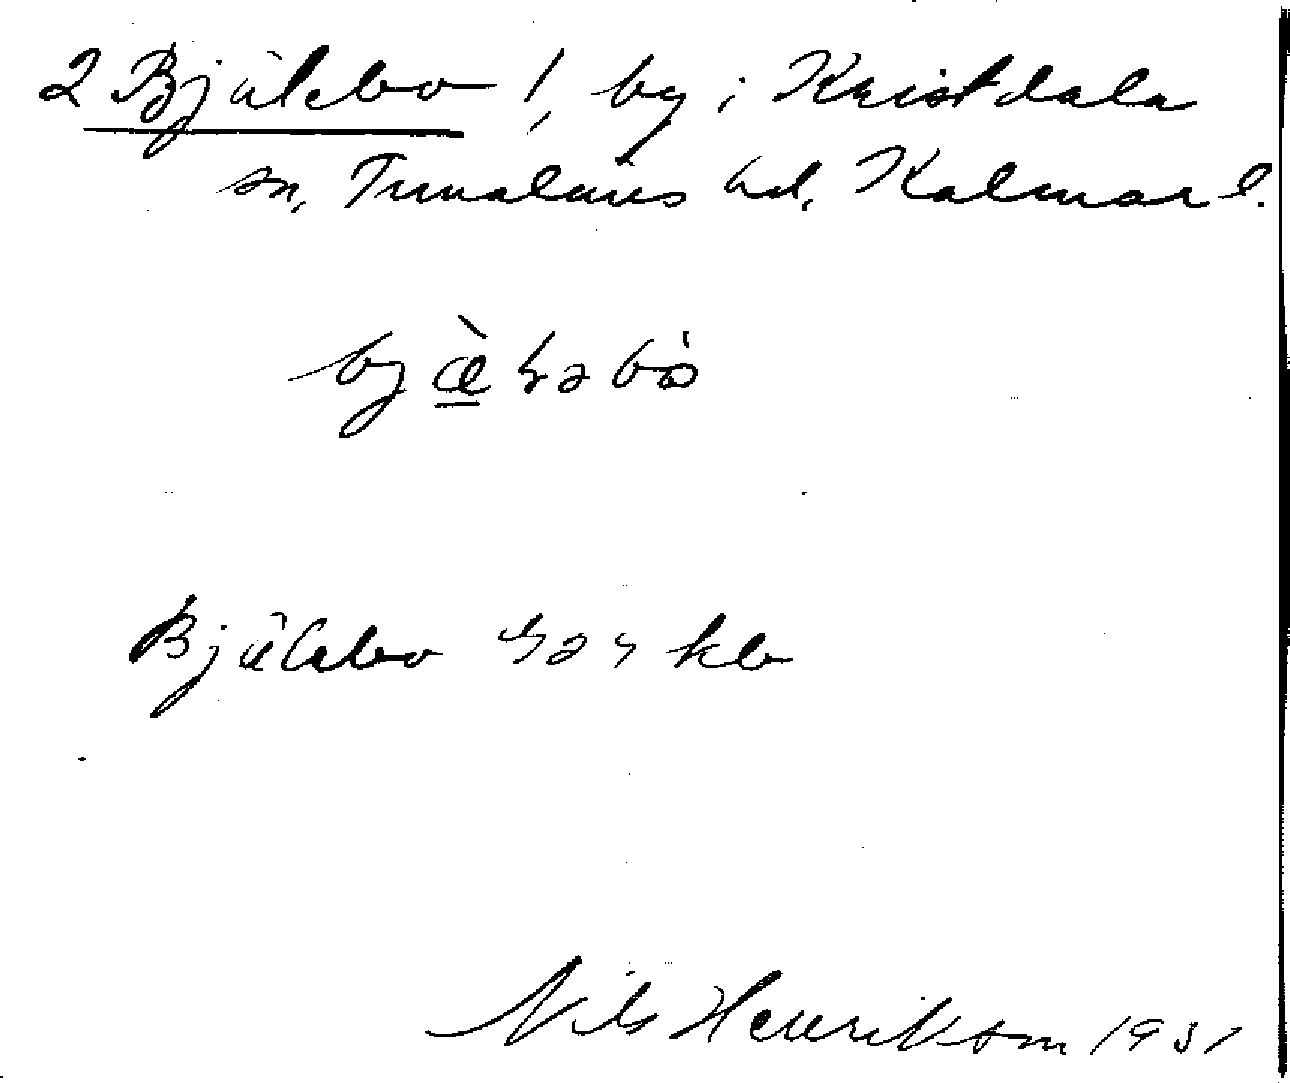 2 Bjälebo !, by i Kristdala
sn, Tunaläns hd, Kalmar l.
Bjälebo
kb
Nils Henrikson 1931